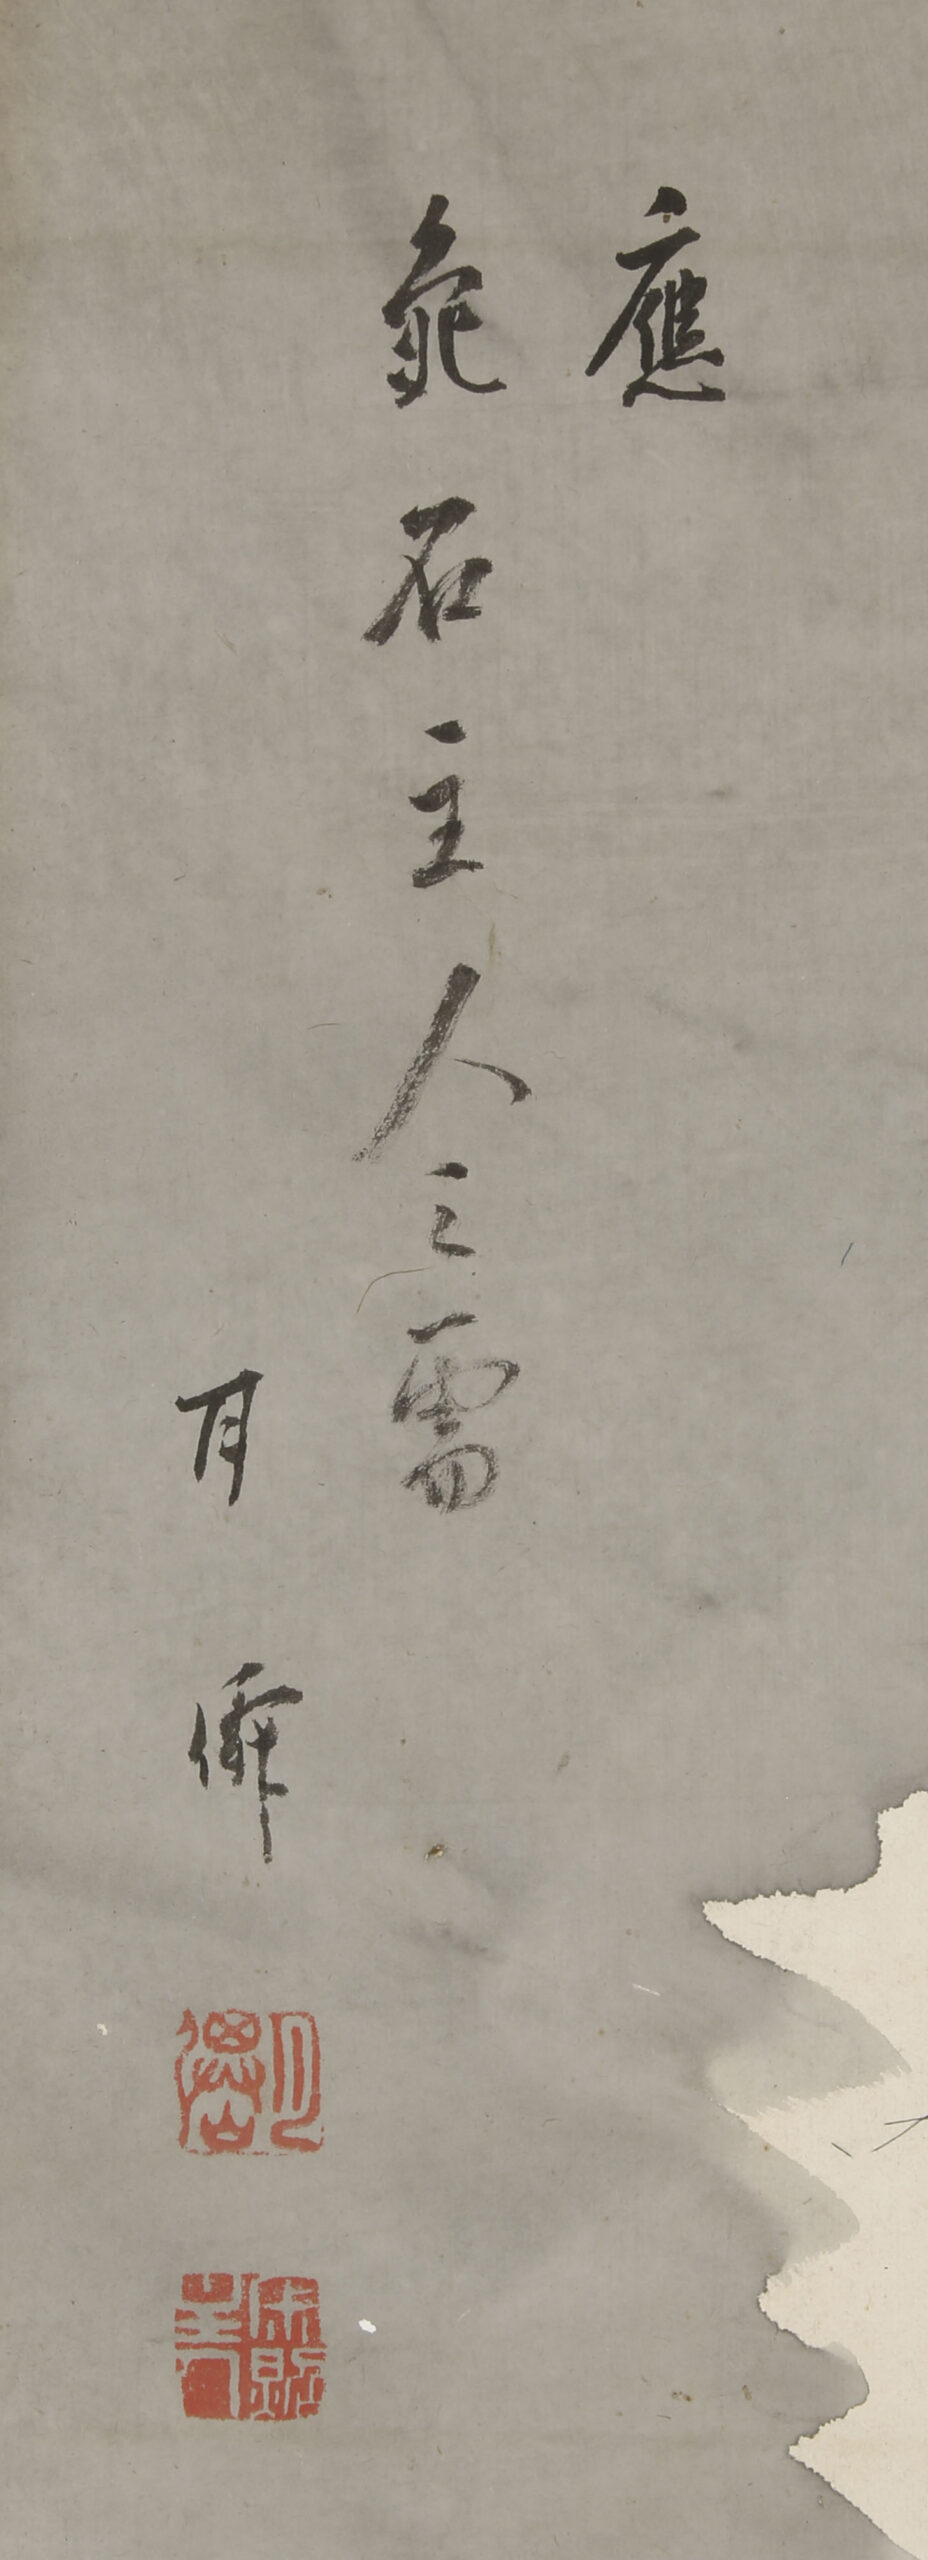 應
龜石主人之需
月僊
月僊